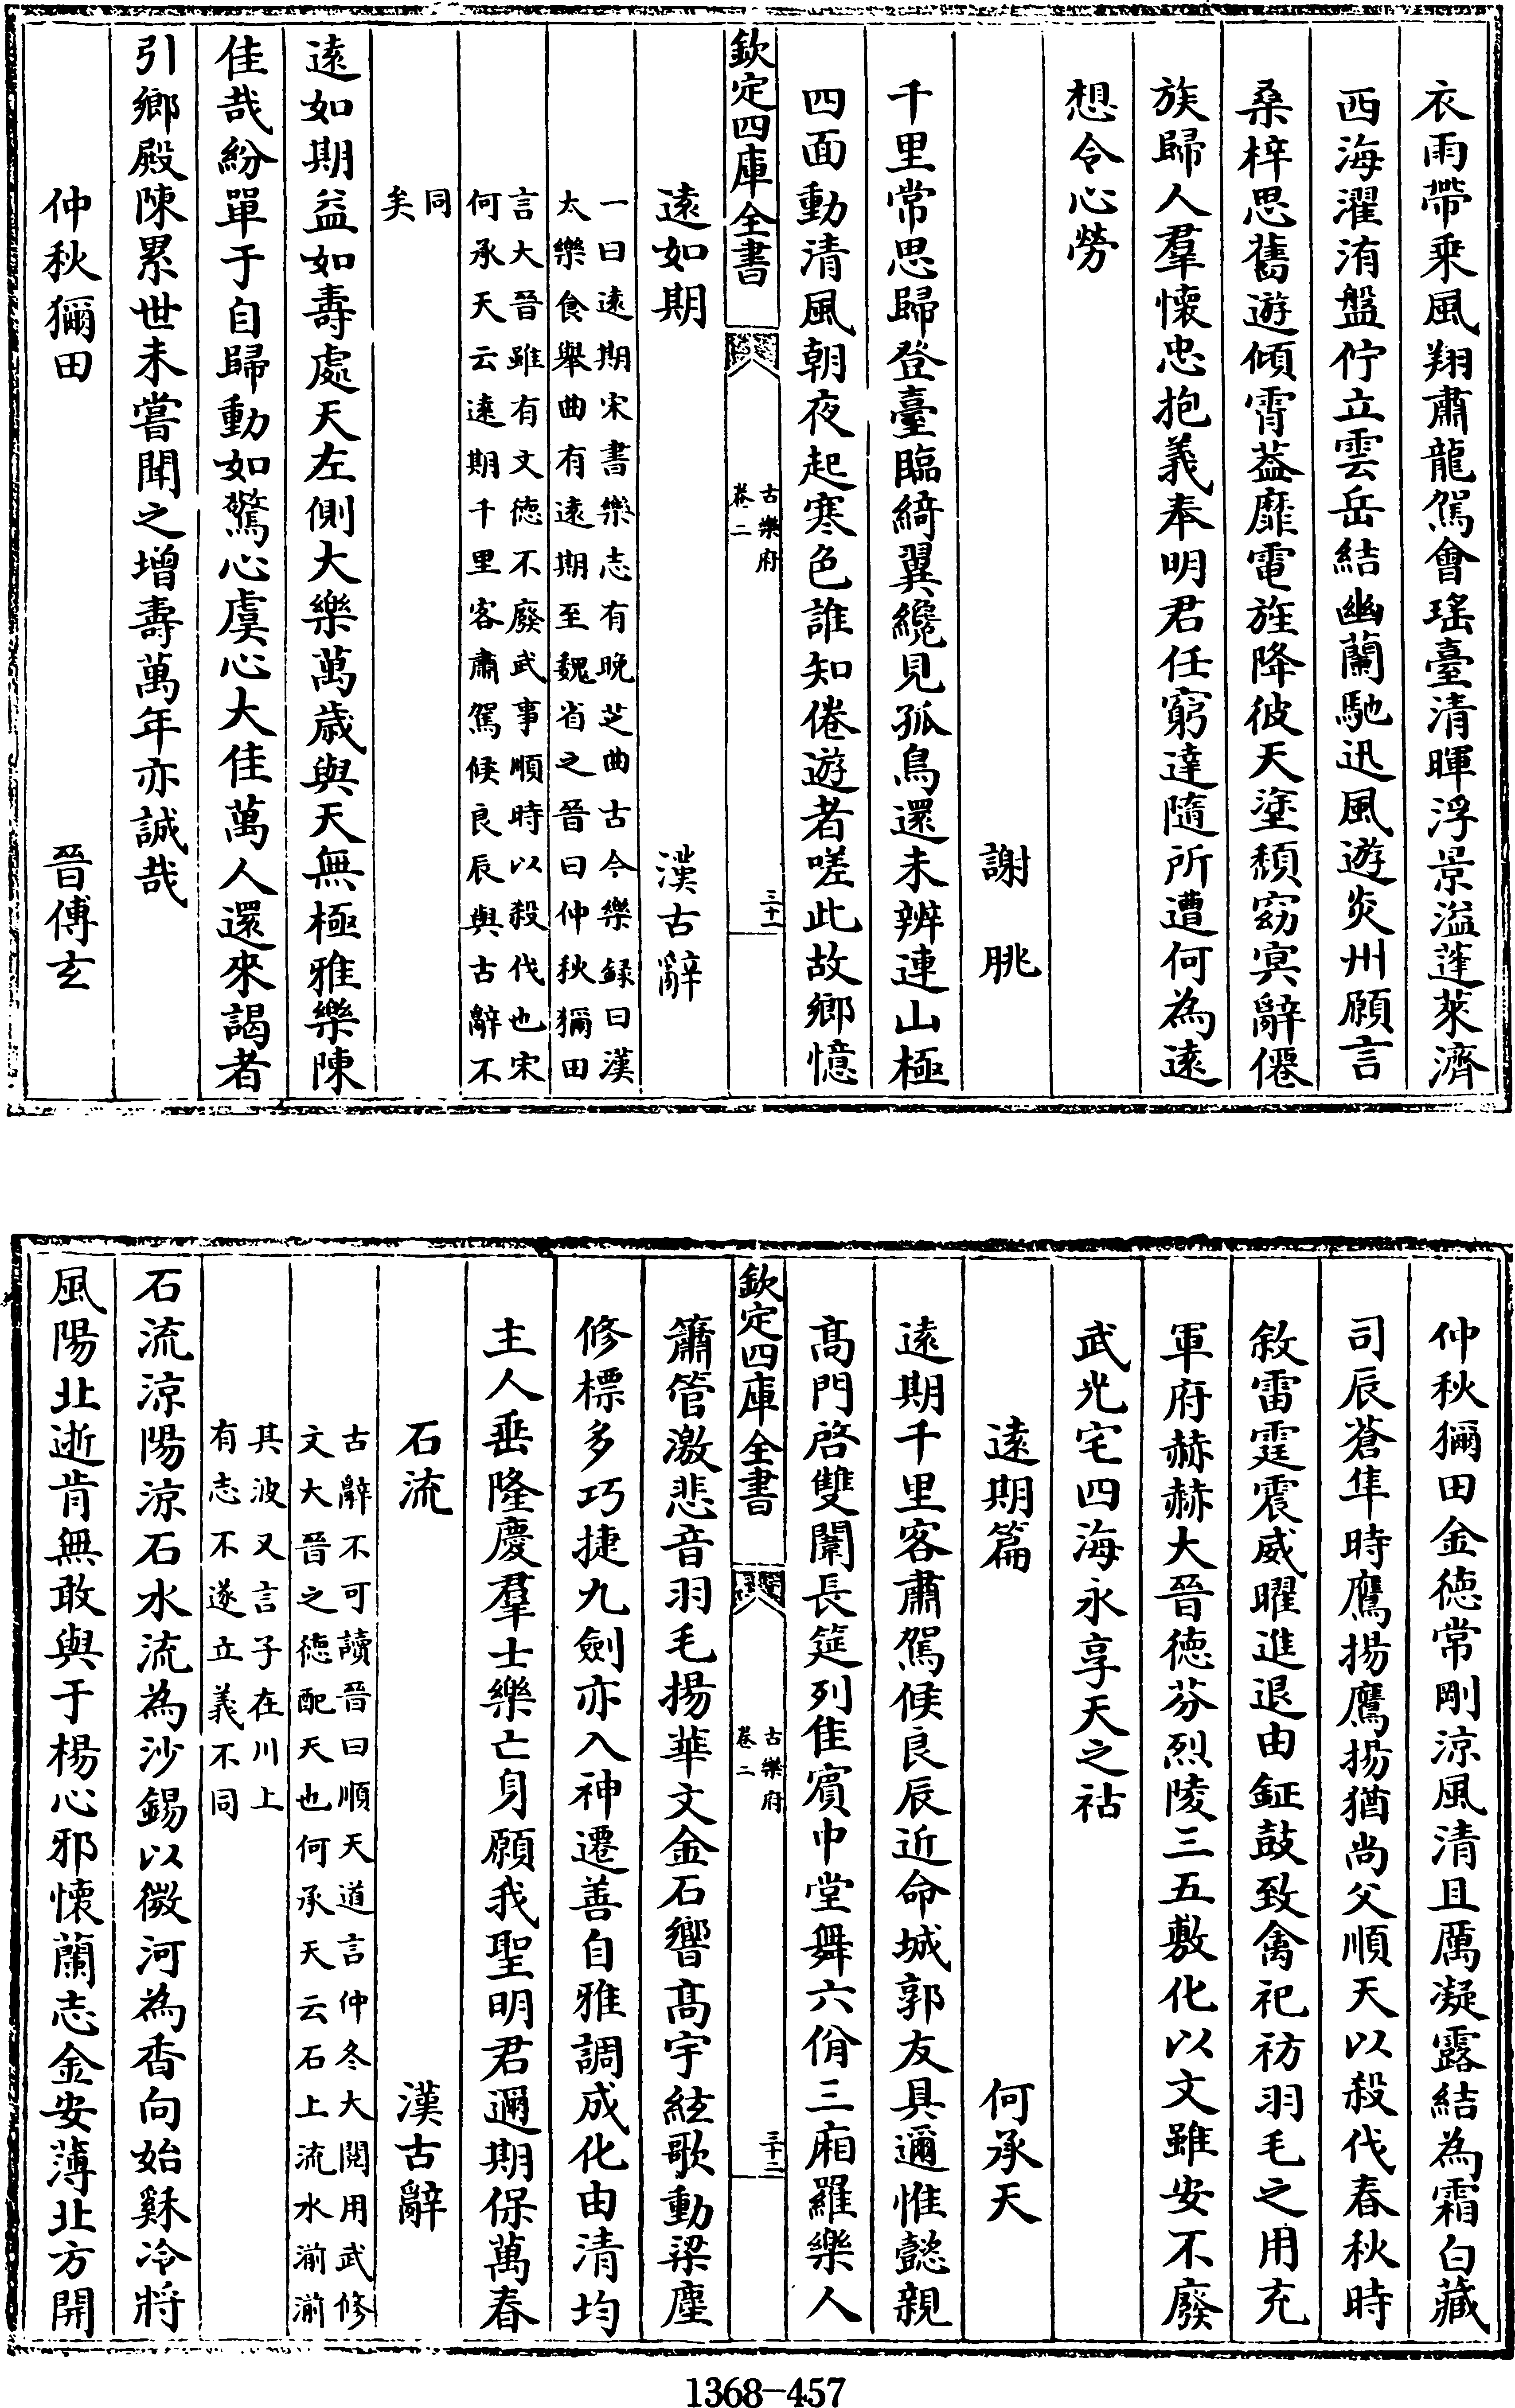 衣雨帶乘風翔肅龍駕會瑤臺清暉浮景溢蓬萊濟
西海濯洧盤佇立雲岳結幽蘭馳迅風遊炎州願言
桑梓思舊遊傾霄葢靡電旌降彼天塗頽窈冥辭僊
族歸人羣懷忠抱義奉明君任窮達隨所遭何為遠
想令心勞
謝朓
千里常思歸登臺臨綺翼纔見孤鳥還未辨連山極
四面動清風朝夜起寒色誰知倦遊者嗟此故鄉憶
欽定四庫全書
古樂府
卷二
三十一
遠如期 漢古辭
一曰遠期宋書樂志有晚芝曲古今樂録曰漢
太樂食舉曲有遠期至魏省之晉曰仲秋獮田
言大晉雖有文德不廢武事順時以殺伐也宋
何承天云遠期千里客肅駕候良辰與古辭不
同
矣
遠如期益如壽處天左側大樂萬歲與天無極雅樂陳
佳哉紛單于自歸動如驚心虞心大佳萬人還來謁者
引鄉殿陳累世未嘗聞之增壽萬年亦誠哉
仲秋獮田 晉傅玄
仲秋獮田金德常剛涼風清且厲凝露結為霜白藏
司辰蒼隼時鷹揚鷹揚猶尚父順天以殺伐春秋時
敘雷霆震威曜進退由鉦鼓致禽祀祊羽毛之用充
軍府赫赫大晉德芬烈陵三五敷化以文雖安不廢
武光宅四海永享天之祜
遠期篇 何承天
遠期千里客肅駕候良辰近命城郭友具邇惟懿親
髙門啓雙闈長筵列隹賓中堂舞六佾三廂羅樂人
欽定四庫全書
古樂府
卷二
三十二
簫管激悲音羽毛揚華文金石響髙宇絃歌動梁塵
修標多巧捷九劍亦入神遷善自雅調成化由清均
主人垂隆慶羣士樂亡身願我聖明君邇期保萬春
石流 漢古辭
古辭不可讀晉曰順天道言仲冬大閱用武修
文大晉之德配天也何承天云石上流水湔湔
其波又言子在川上
有志不遂立義不同
石流涼陽涼石水流為沙錫以微河為香向始穌冷將
風陽北逝肯無敢與于楊心邪懷蘭志金安薄北方開
1368-457